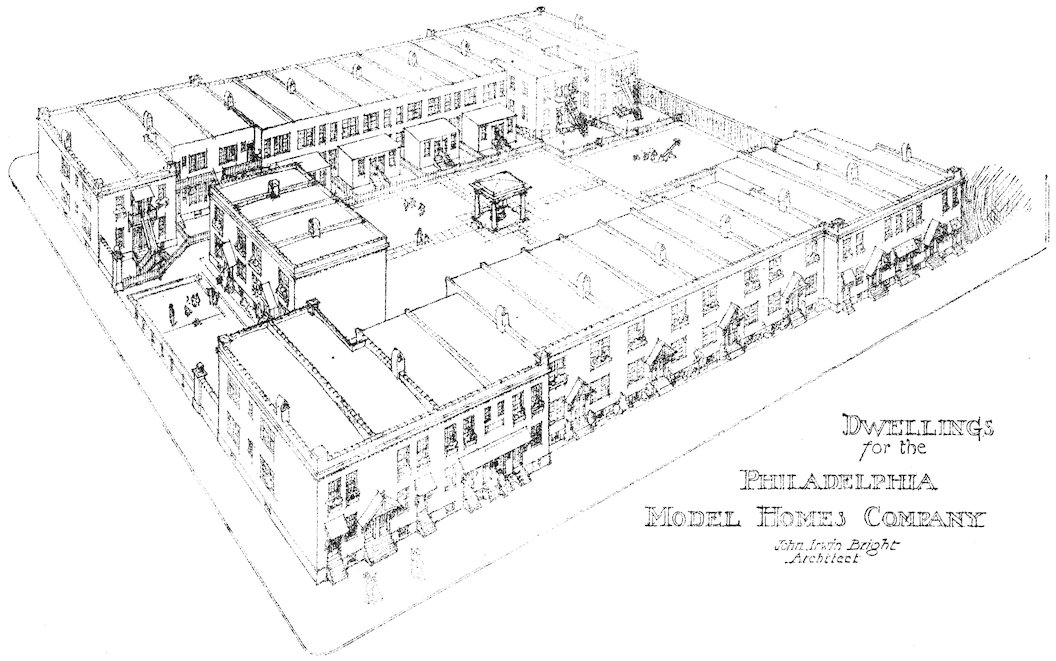 DWELLINGS
for the
PHILADELPHIA
MODEL HOMES COMPANY
John Irwin Bright
Architect